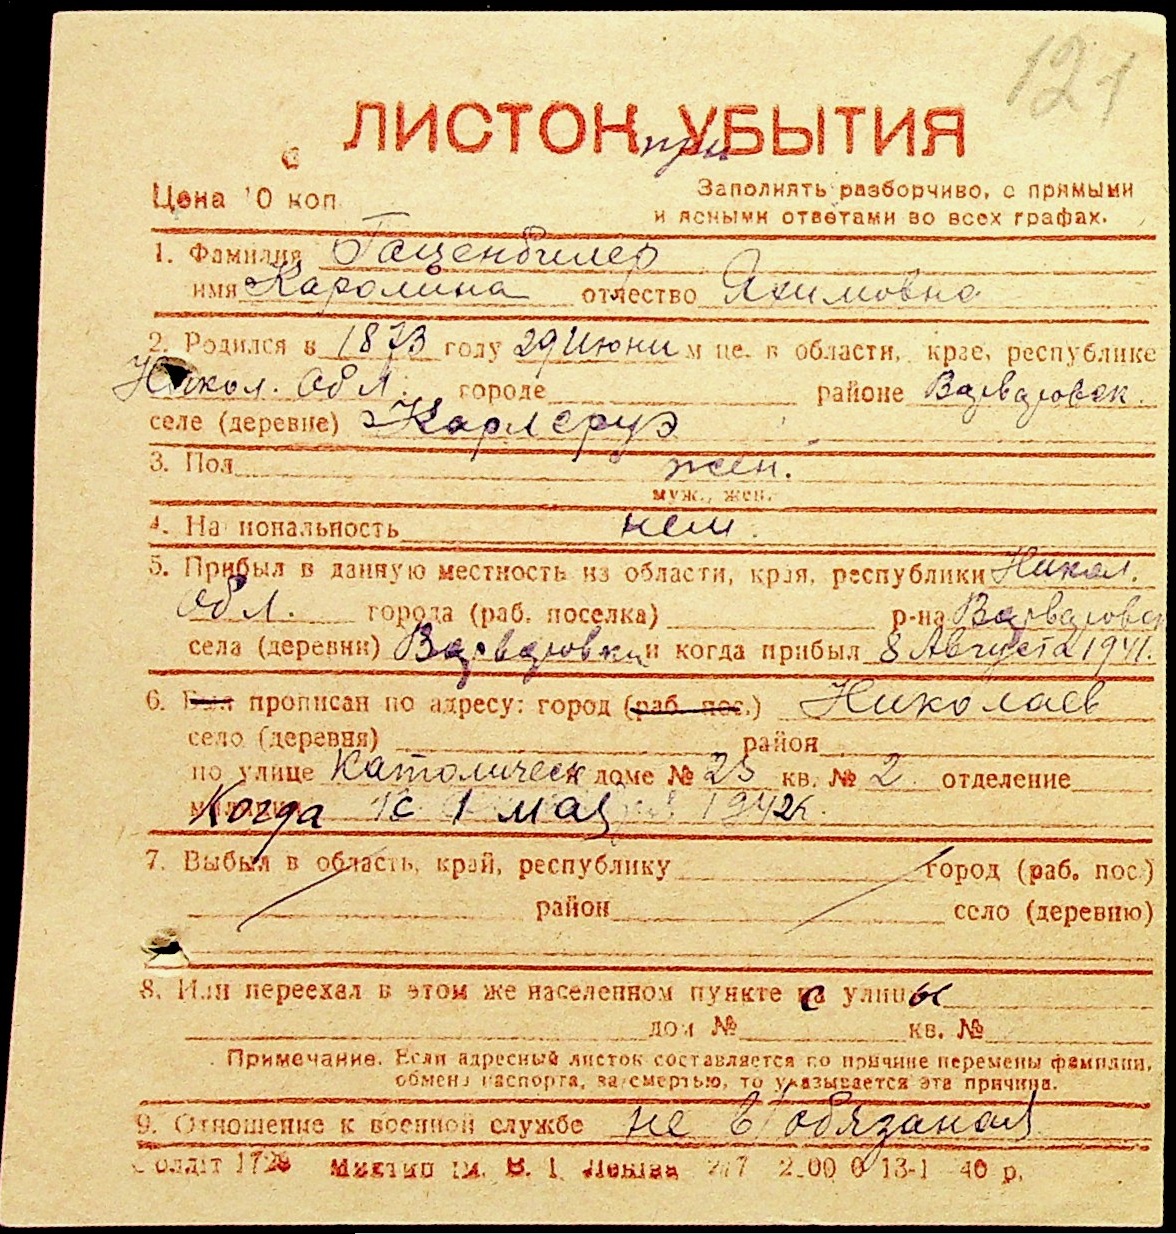 121
ЛИСТОК УБЫТИЯ
при
Цена 10 коп.
Заполнять разборчиво, с прямыми
и ясными ответами во всех графах.
1. Фамилия Гаценбилер
имя Каролина отчество Яхимовна
2. Родился в 1873 году 29 Июни м-це. в области, крае, республике
Никол. обл. городе районе Варваровск.
селе (деревне) Карлсруэ
3. Пол жен.
муж., жен.
4. Национальность нем.
5. Прибыл в данную местность из области, края, республики Никол.
обл. города (раб. поселка) р-на Варваровск
села (деревни) Варваровки и когда прибыл 8 Августа 1941.
6. Был прописан по адресу: город (раб. пос.) Николаев
село (деревня) район
по улице Католическ доме № 25 кв. № 2 отделение
Когда с 1 мая 1942г.
7. Выбыл в область, край, республику город (раб. пос.)
район село (деревню)
8. Или переехал в этом же населенном пункте с улицы
дом № кв. №
Примечание. Если адресный листок составляется по причине перемены фамилии,
обмена паспорта, за смертью, то указывается эта причина.
9. Отношение к военной службе не в/обязаная
Солдіт 172 Миктип ім. В. І. Леніна 2.00 0 13-1 40 р.